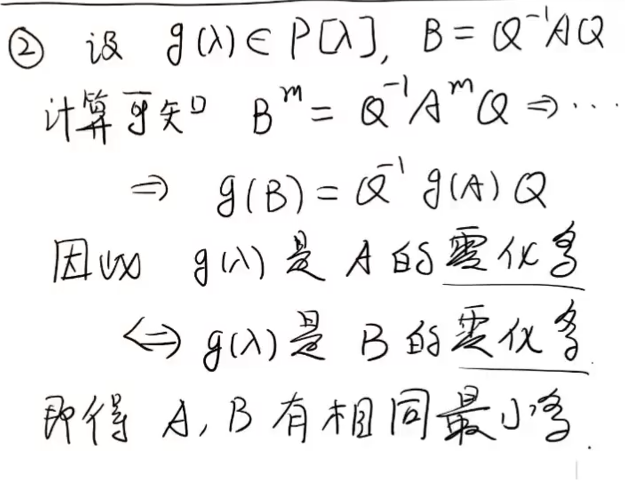 ② 设 g(λ)∈P[λ], B=Q⁻¹AQ
计算可知 Bᵐ=Q⁻¹AᵐQ ⇒ ⋯
⇒ g(B)=Q⁻¹g(A)Q
因此 g(λ)是 A 的零化多
⇔ g(λ)是 B 的零化多.
即得 A, B 有相同最小多.